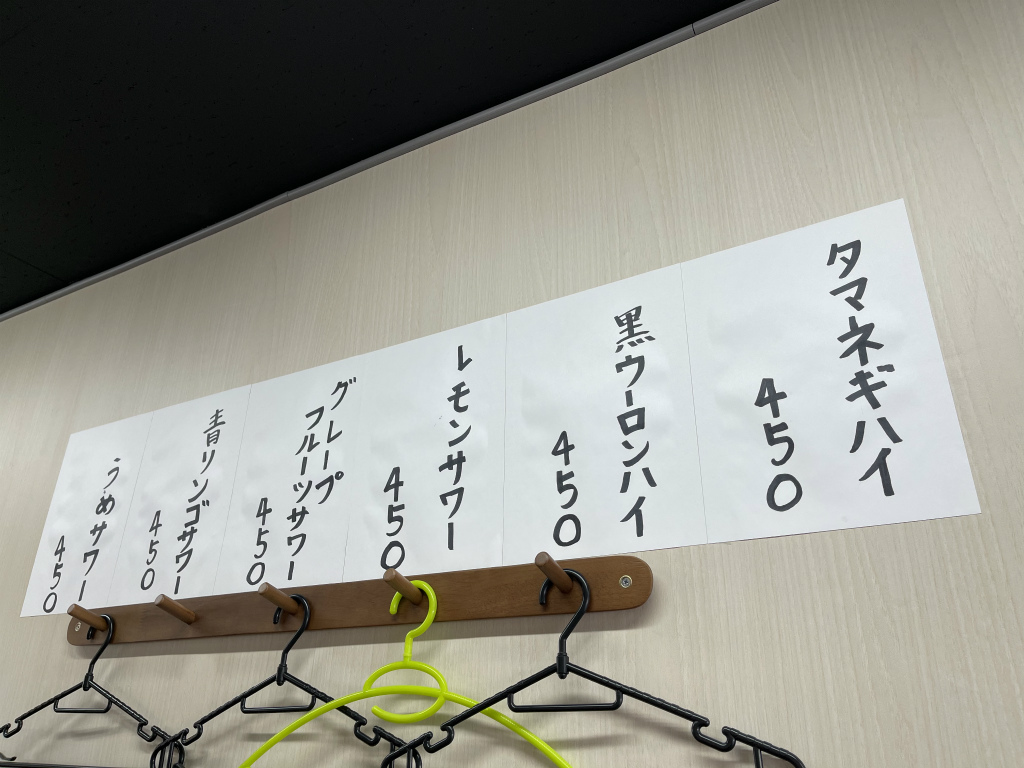 タマネギハイ
450
黒ウーロンハイ
450
レモンサワー
450
グレープ
フルーツサワー
450
青リンゴサワー
450
うめサワー
450